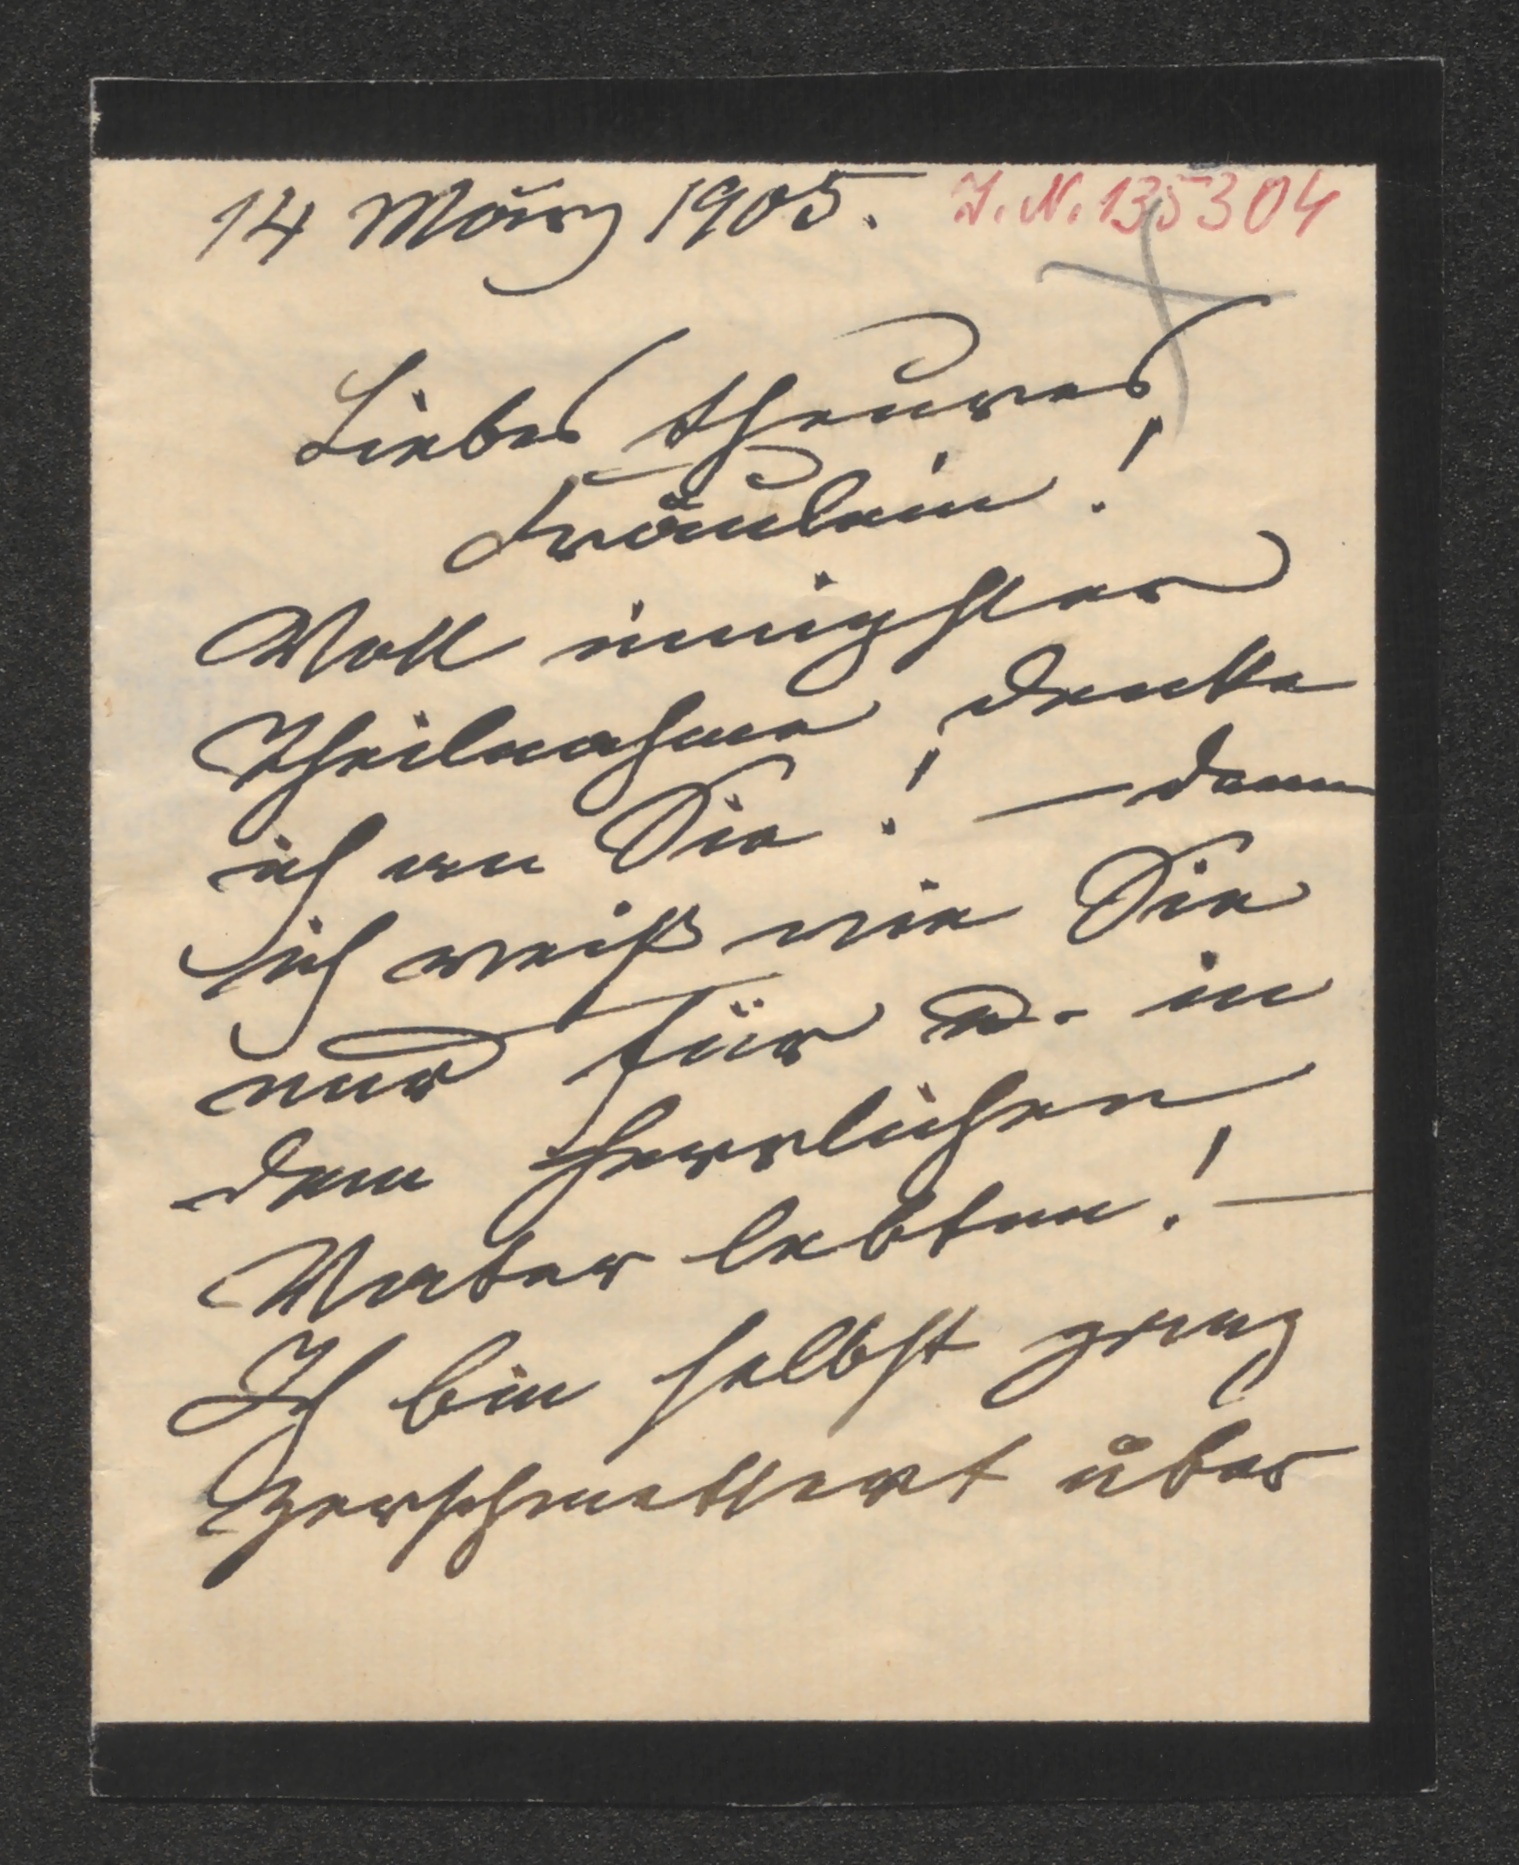 14 März 1905. J. N. 135304
Liebes theures
Fräulein!
Voll innigster
Theilnahme denke
ich an Sie! — denn
ich weiß wie Sie
nur für u. in
dem herrlichen
Vater lebten! —
Ich bin selbst ganz
zerschmettert über